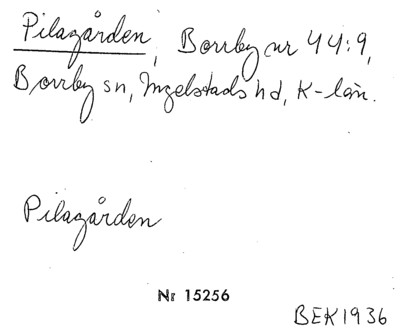 Pilagården, Borrby nr 44:9,
Borrby sn, Ingelstads hd, K-län.
Pilagården
Nr 15256
BEK1936